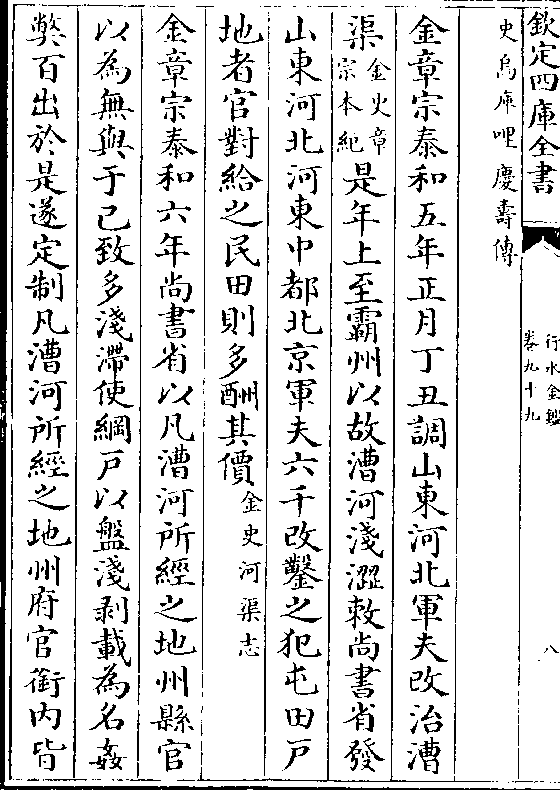 欽定四庫全書
行水金鑑
卷九十九
八
史烏庫哩慶壽傳
金章宗泰和五年正月丁丑調山東河北軍夫改治漕
渠金史章宗本紀是年上至霸州以故漕河淺澀敕尚書省發
山東河北河東中都北京軍夫六千改鑿之犯屯田戸
地者官對給之民田則多酬其價金史河渠志
金章宗泰和六年尚書省以凡漕河所經之地州縣官
以為無與于已致多淺滯使綱戸以盤淺剥載為名姦
弊百出於是遂定制凡漕河所經之地州府官銜内皆